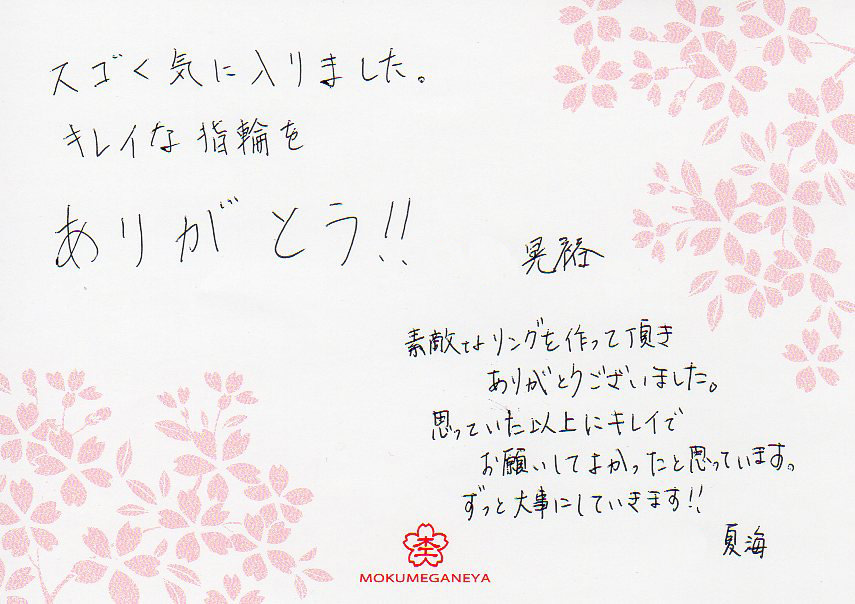 スゴく気に入りました。
キレイな指輪を
ありがとう!!
素敵なリングを作って頂き
ありがとうございました。
思っていた以上にキレイで
お願いしてよかったと思っています。
ずっと大事にしていきます!!
夏海
MOKUMEGANEYA